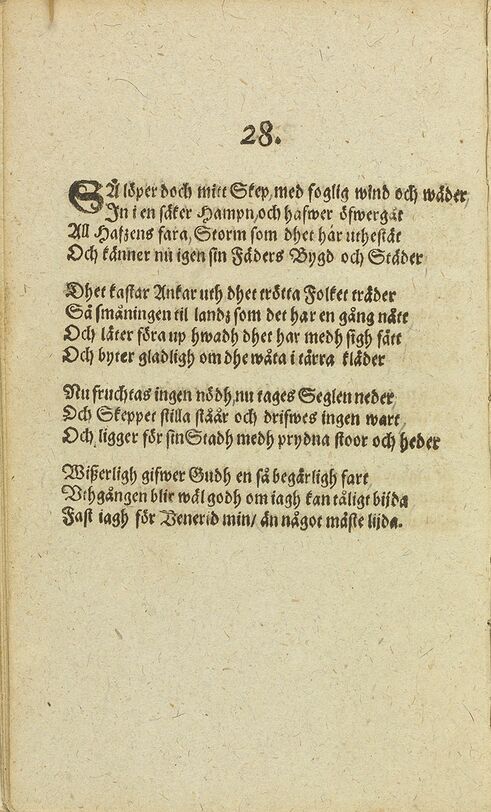 28.
SÅ löper doch mitt Skep, med foglig wind och wäder,
In i en säker Hampn, och hafwer öfwergåt
All Hafzens fara, Storm som dhet har uthestát
Och känner nu igen sin Fäders Bygd och Städer
Dhet kastar Ankar uth dhet trötta Folket träder
Så småningen til landz som det har en gång nått
Och låter föra up hwadh dhet har medh sigh fått
Och byter gladligh om dhe wåta i tårra kläder
Nu fruchtas ingen nödh, nu tages Seglen neder,
Och Skeppet stilla stáár och drifwes ingen wart,
Och, ligger för sin Stadh medh prydna stoor och heder
Wißerligh gifwer Gudh en så begärligh fart
Vthgången blir wäl godh om iagh kan tåligt bijda
Fast iagh för Venerid min/ än något måste lijda.